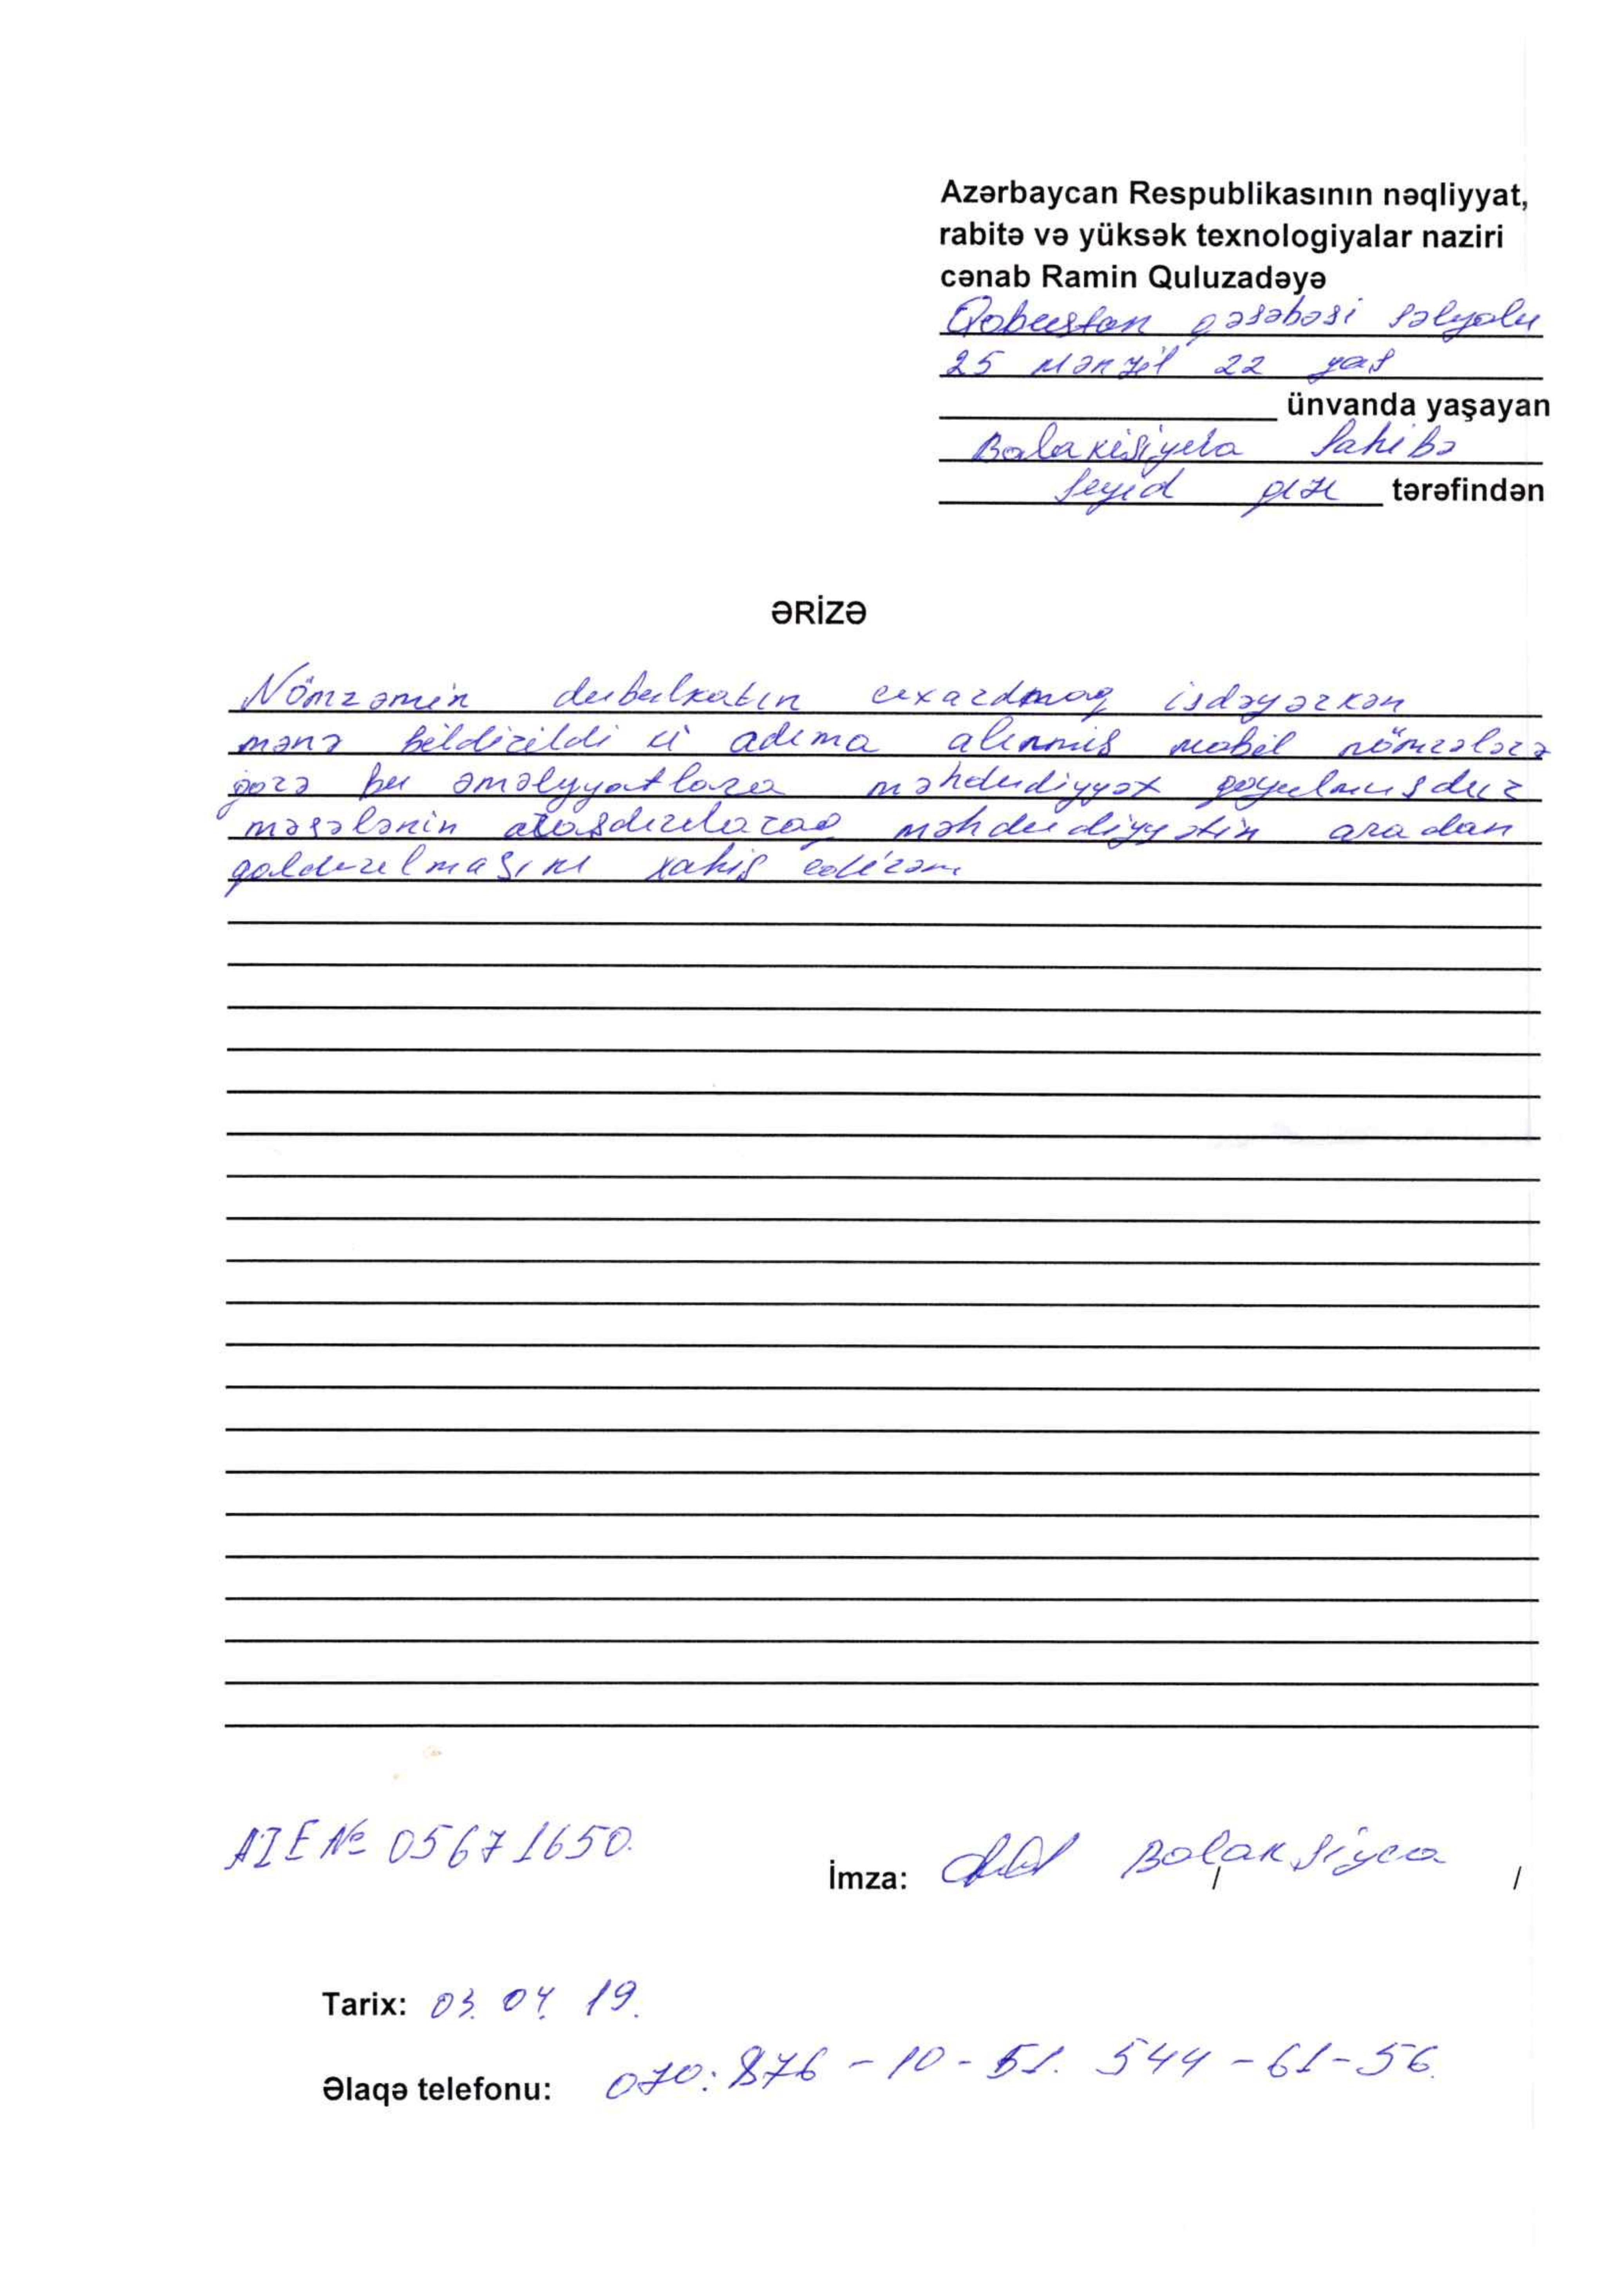 Azərbaycan Respublikasının nəqliyyat,
rabitə və yüksək texnologiyalar naziri
cənab Ramin Quluzadəyə
Qobustan qəsəbəsi
25 mənzil 22 yaş
ünvanda yaşayan
Balakişiyeva Sahibə
Seyid qızı tərəfindən
ƏRİZƏ
Nömrəmin dubulkatın cıxardmaq isdəyərkən
mənə bildirildi ki adıma alınmış mobil nömrələrə
görə bu əməlyyatlara məhdudiyyət qoyulmuşdur
məsələnin araşdırılaraq məhdudiyyətin aradan
qaldırılmasını xahiş edirəm
AZE № 05671650.
İmza: / /
Tarix: 03. 04. 19.
Əlaqə telefonu: 070: 876 - 10 - 51. 544 - 61 - 56.